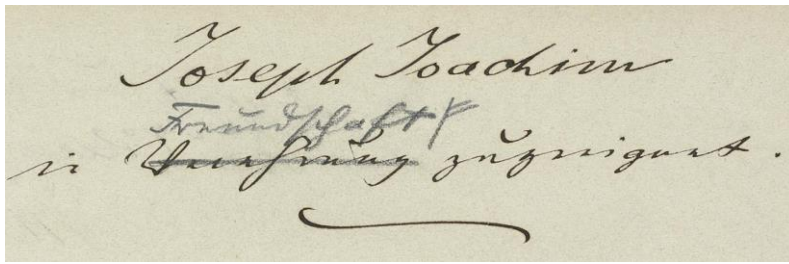 Joseph Joachim
Freundschaft
in Verehrung zugeeignet.